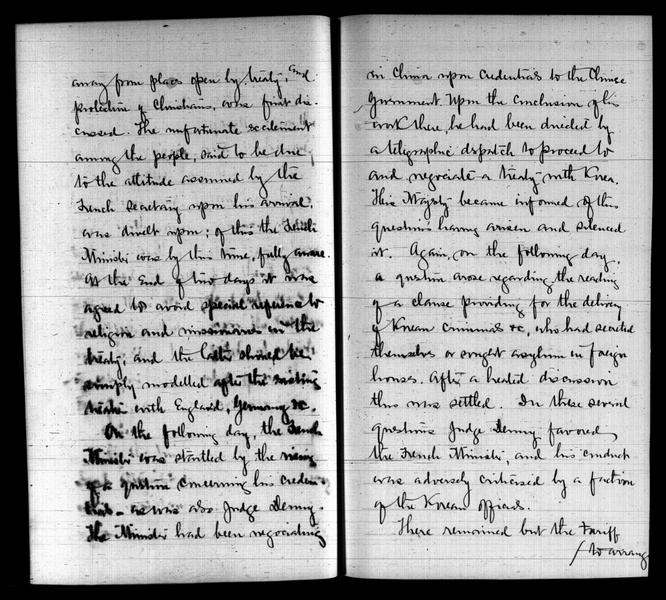 away from places open by treaty, and
protection of Christians, was first dis-
cussed. The unfortunate excitement
among the people, said to be due
to the attitude assumed by the
French secretary upon his arrival,
was dwelt upon; of this the French
Minister was by this time, fully aware.
At the end of two days it was
agreed to avoid special reference to
religion and missionaries in the
treaty, and the latter should be
simply modelled after the existing
treaties with England, Germany &c.
On the following day, the French
Minister was startled by the rising
of a question concerning his creden-
tials – as was also Judge Denny.
The Minister had been negociating
in China upon credentials to the Chinese
Government. Upon the conclusion of his
work there, he had been directed by
a telegraphic dispatch to proceed to
and negociate a treaty with Korea.
His Majesty became informed of this
question's having arisen and silenced
it. Again, on the following day,
a question arose regarding the reading
of a clause providing for the delivery
of Korean criminals &c, who had secreted
themselves or sought asylum in foreign
houses. After a heated discussion
this was settled. In these several
questions Judge Denny favored
the French Minister, and his conduct
was adversely criticised by a faction
of the Korean officials.
There remained but the Tariff
to arrange